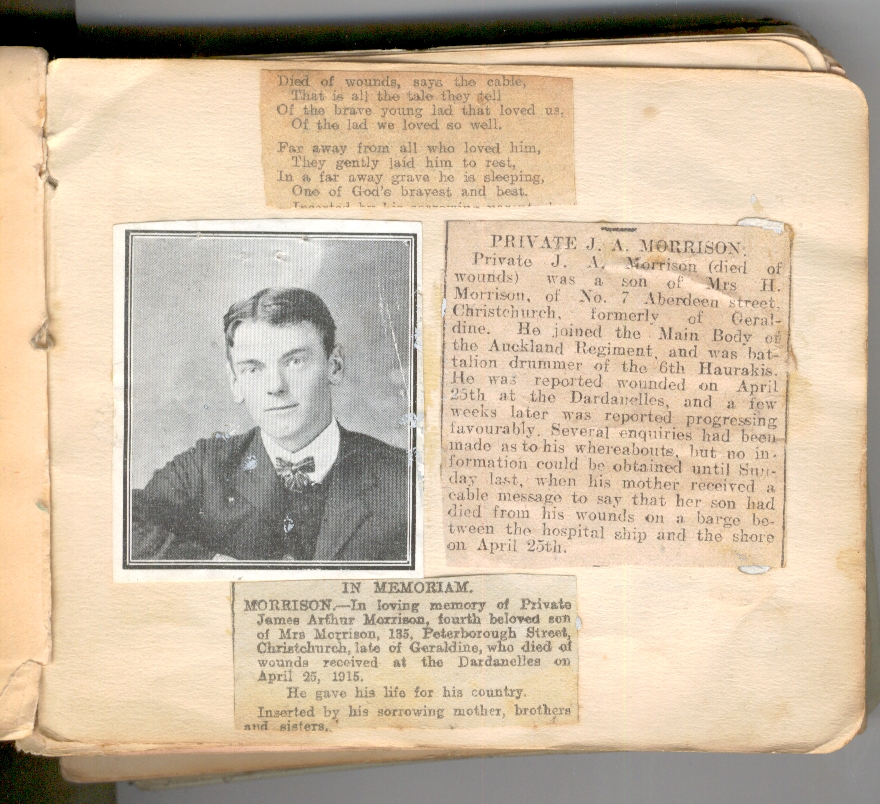 Died of wounds, says the cable,
That is all the tale they tell
Of the brave young lad that loved us,
Of the lad we loved so well.
Far away from all who loved him,
They gently laid him to rest,
In a far away grave he is sleeping,
One of God's bravest and best.
Inserted by his sorrowing
PRIVATE J. A. MORRISON.
Private J. A. Morrison (died of
wounds) was a son of Mrs H.
Morrison, of No. 7 Aberdeen street,
Christchurch, formerly of Geral-
dine. He joined the Main Body of
the Auckland Regiment, and was bat-
talion drummer of the 6th Haurakis.
He was reported wounded on April
25th at the Dardanelles, and a few
weeks later was reported progressing
favourably. Several enquiries had been
made as to his whereabouts, but no in-
formation could be obtained until Sun-
day last, when his mother received a
cable message to say that her son had
died from his wounds on a barge be-
tween the hospital ship and the shore
on April 25th.
IN MEMORIAM.
MORRISON.—In loving memory of Private
James Arthur Morrison, fourth beloved son
of Mrs Morrison, 135, Peterborough Street,
Christchurch, late of Geraldine, who died of
wounds received at the Dardanelles on
April 25, 1915.
He gave his life for his country.
Inserted by his sorrowing mother, brothers
and sisters.